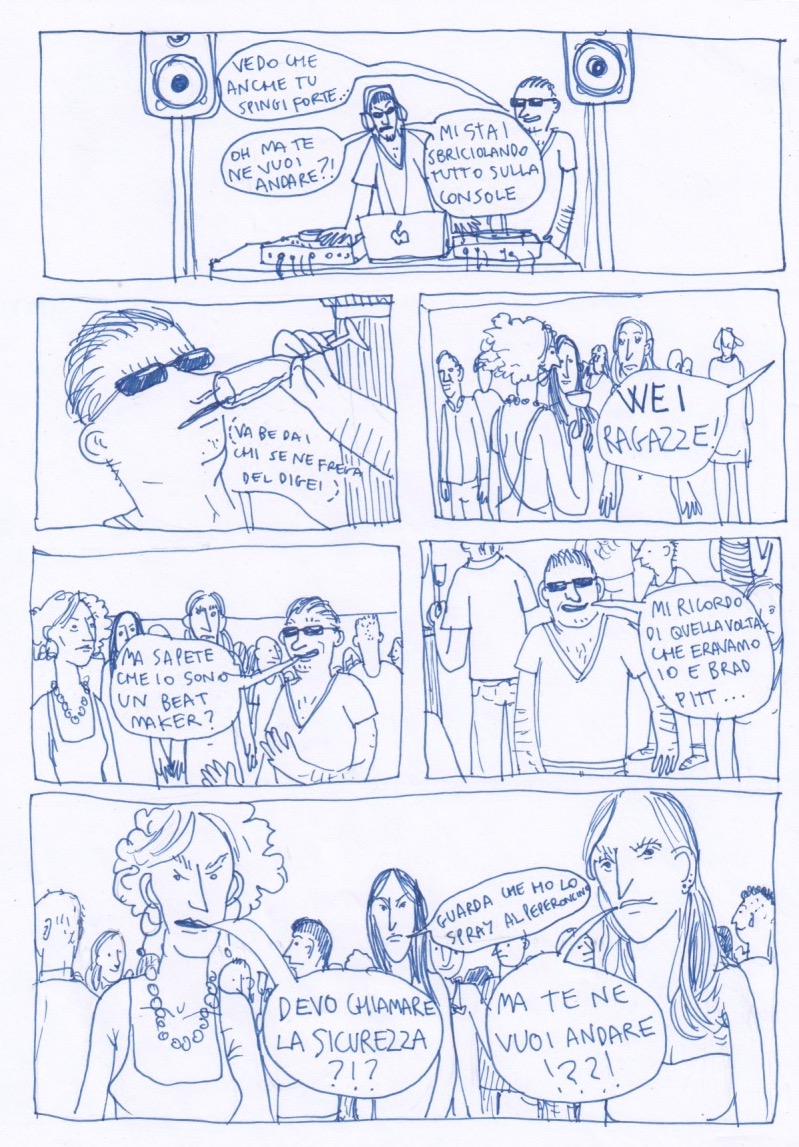 VEDO CHE
ANCHE TU
SPINGI FORTE...
OH MA TE
NE VUOI
ANDARE?!
MI STAI
SBRICIOLANDO
TUTTO SULLA
CONSOLE
VA BE DAI
CHI SE NE FREGA
DEL DIGEI
WEI
RAGAZZE!
MA SAPETE
CHE IO SONO
UN BEAT
MAKER?
MI RICORDO
DI QUELLA VOLTA
CHE ERAVAMO
IO E BRAD
PITT...
GUARDA CHE HO LO
SPRAY AL PEPERONCINO
DEVO CHIAMARE
LA SICUREZZA
?!?
MA TE NE
VUOI ANDARE
!??!